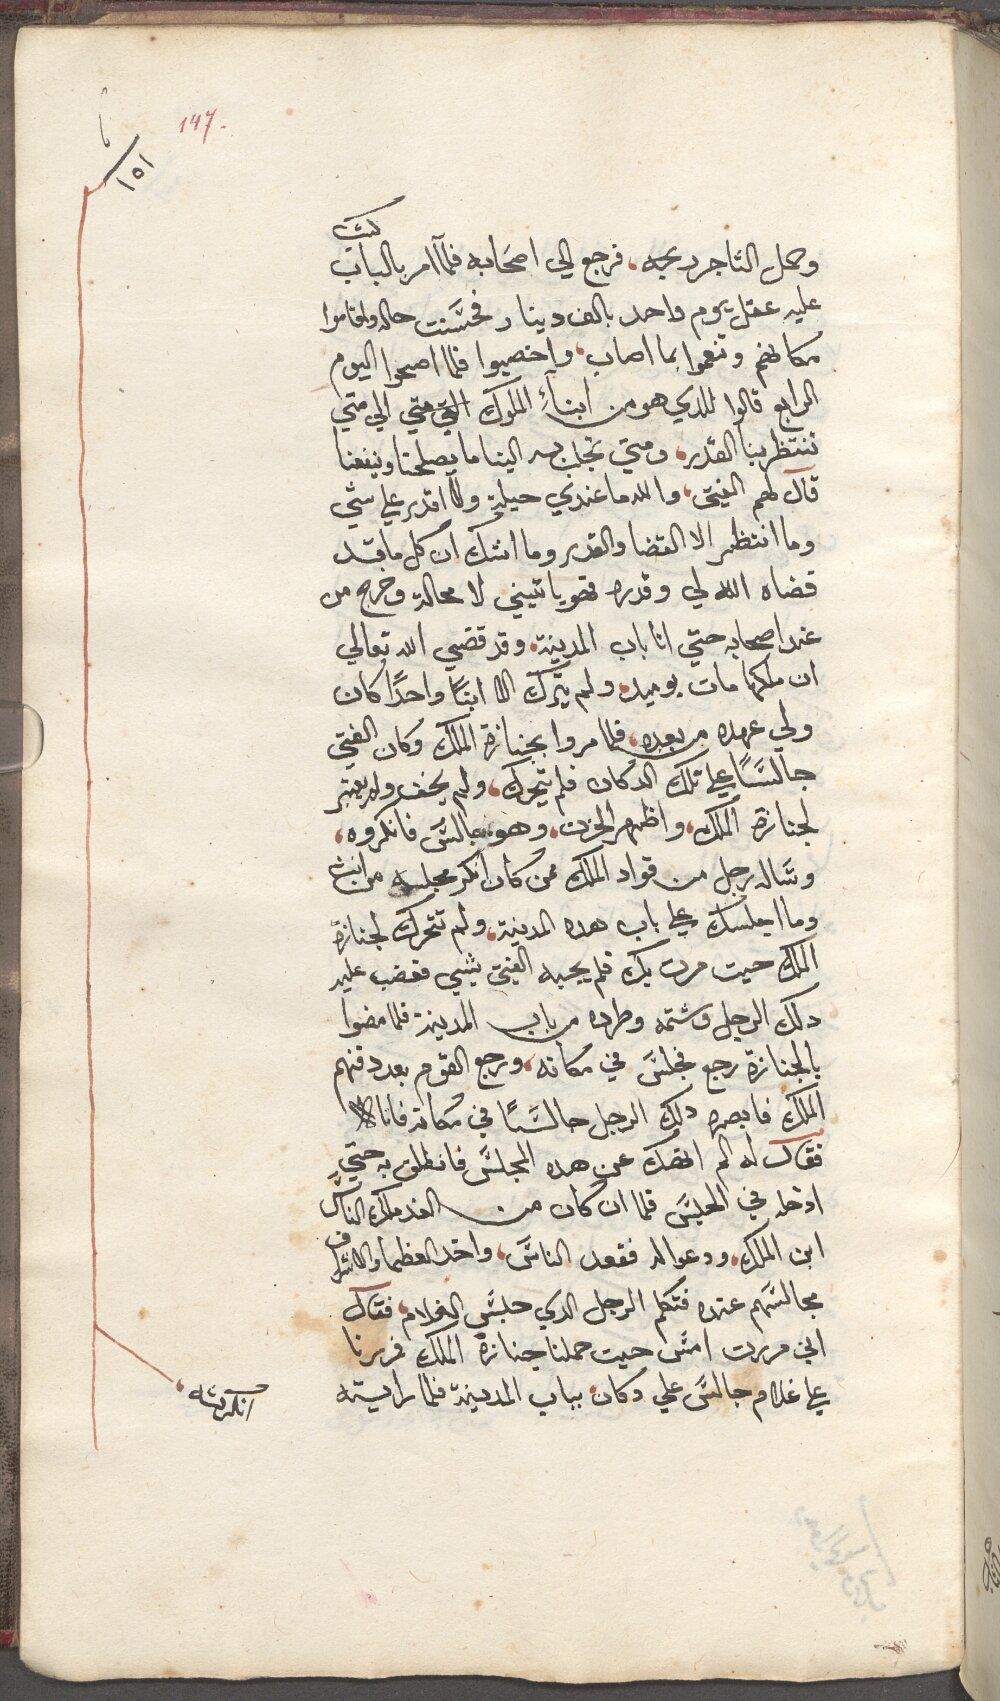 147.
١٥١
كتب
وحمل التاجر ربحه، فرجع الي اصحابه فلما امر بالباب
عليه عقل يوم واحد بالف دينار فحسنت حاله واقاموا
مكانهم وتنعموا بما اصاب، واخصبوا فلما اصبحوا اليوم
الرابع قالوا للدي هو من ابناء الملوك متي الي متي
تنتظر بنا القدر، ومتي تجلب به الينا ما يصلحنا وينفعنا
قال لهم الفتي، والله ما عندي حيلة ولا اقدر علي شي
وما انتظر الا القضا والقدر وما اشك ان كل ما قد
قضاه الله لي وقدره فهو ياتيني لا محالة وخرج من
عند اصحابه حتي اتا باب المدينة، وقد قضي الله تعالي
ان ملكها مات يوميد، ولم يترك الا ابنًا واحدًا كان
ولي عهده من بعده، فلما مروا بجنازة الملك وكان الفتي
جالسًا علي تلك الدكان فلم يتحرك، ولم يخف ولم يهتم
لجنازة الملك، واظهر الحزن، وهو جالس فانكروه،
وساله رجل من قواد الملك ممن كان انكر مجلسه من انت
وما اجلسك علي باب هده المدينة، ولم تتحرك لجنازة
الملك حيت مرت بك فلم يجبه الفتي بشي فغضب عليه
دلك الرجل وشتمه وطرده من باب المدينة فلما مضوا
بالجنازة رجع فجلس في مكانه، ورجع القوم بعد دفنهم
الملك فابصره دلك الرجل جالسًا في مكانه فاتاه
فقال له الم انهك عن هده المجلس فانطلق به حتي
ادخله في الحبس فلما ان كان من الغد ملك الناس
ابن الملك، ودعوا له فقعد الناس، واخد العظما والاشراف
مجالسهم عنده فتكلم الرجل الدي حبس الغلام، فقال
اني مررت امس حيت حملنا جنازة الملك فمررنا
علي غلام جالس علي دكان بباب المدينة فلما رايته
انكرته